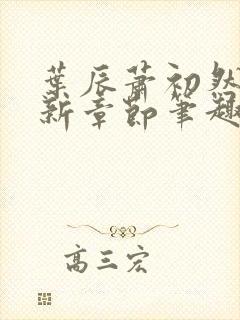 葉辰蕭初然
新章節筆趣
高三宏